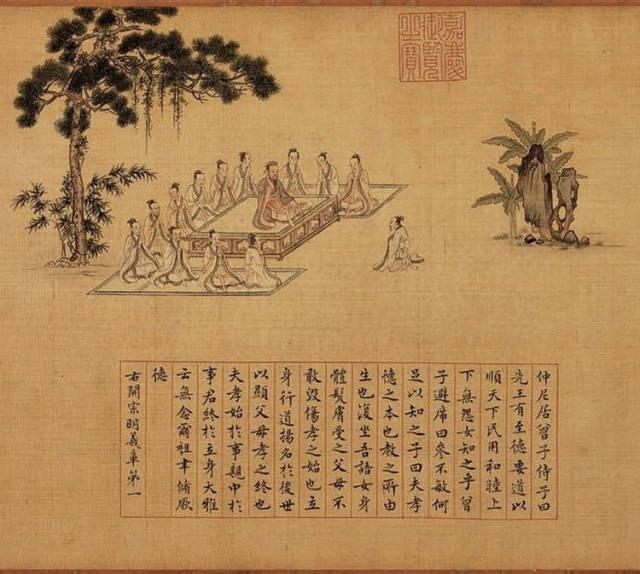 嘉慶
御覽
之寶
仲尼居曾子侍子曰
先王有至德要道以
順天下民用和睦上
下無怨女知之乎曾
子避席曰參不敏何
足以知之子曰夫孝
德之本也教之所由
生也復坐吾語女身
體髮膚受之父母不
敢毀傷孝之始也立
身行道揚名於後世
以顯父母孝之終也
夫孝始於事親中於
事君終於立身大雅
云無念爾祖聿脩厥
德
右開宗明義章第一